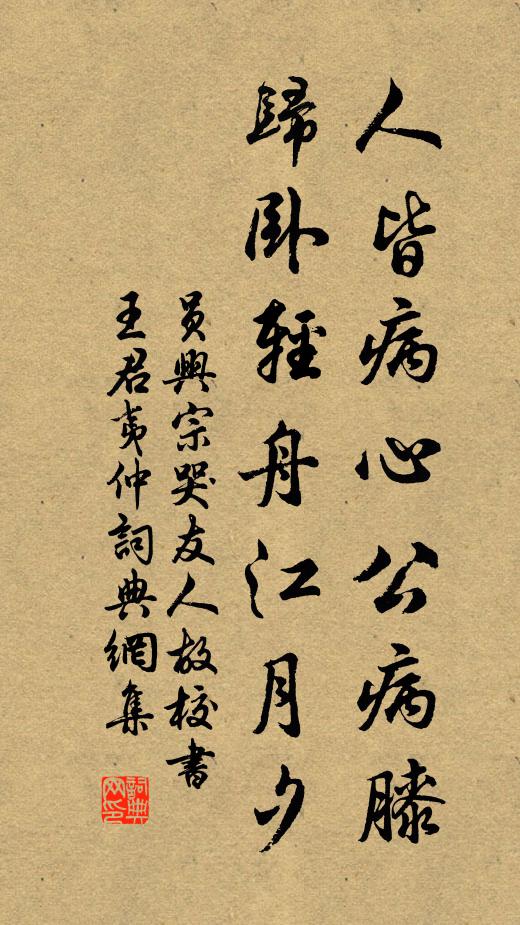 人皆病心公病膝
歸臥輕舟江月夕
員興宗哭友人故校書
王君夷仲詞典網集
詞典網印